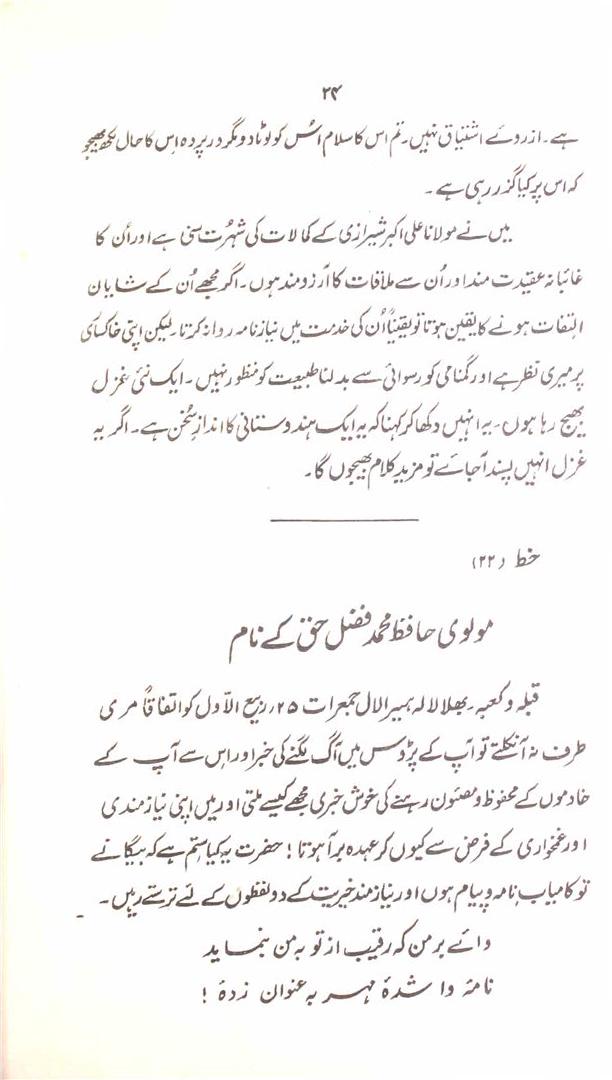 ۲۴
ہے۔ ازروئے اشتیاق نہیں۔ تم اس کا سلام اُس کو لوٹا دو مگر درپردہ اِس کا حال لکھ بھیجو
کہ اس پر کیا گزر رہی ہے۔
میں نے مولانا علی اکبر شیرازی کے کمالات کی شہرت سنی ہے اور اُن کا
غائبانہ عقیدت مند اور اُن سے ملاقات کا آرزومند ہوں۔ اگر مجھے اُن کے شایان
التفات ہونے کا یقین ہوتا تو یقیناً اُن کی خدمت میں نیاز نامہ روانہ کرتا۔ لیکن اپنی خاکساری
پر میری نظر ہے اور گمنامی کو رسوائی سے بدلنا طبیعت کو منظور نہیں۔ ایک نئی غزل
بھیج رہا ہوں۔ یہ انہیں دکھا کر کہنا کہ یہ ایک ہندوستانی کا اندازِ سُخن ہے۔ اگر یہ
غزل انہیں پسند آجائے تو مزید کلام بھیجوں گا۔
خط (۲۲)
مولوی حافظ محمد فضل حق کے نام
قبلہ و کعبہ۔ بھلا لالہ ہیرا لال جمعرات ۲۵؍ ربیع الاوّل کو اتفاقاً مری
طرف نہ آ نکلتے تو آپ کے پڑوس میں آگ لگنے کی خبر اور اس سے آپ کے
خادموں کے محفوظ و مصئون رہنے کی خوش خبری مجھے کیسے ملتی اور میں اپنی نیازمندی
اور غمخواری کے فرض سے کیوں کر عہدہ برآ ہوتا! حضرت یہ کیا ستم ہے کہ بیگانے
تو کامیاب نامہ و پیام ہوں اور نیازمند خیریت کے دو لفظوں کے لئے ترستے رہیں۔
وائے برمن کہ رقیب از تو بہ من بنماید
نامۂ وا شدۂ مہر بہ عنوان زدۂ!